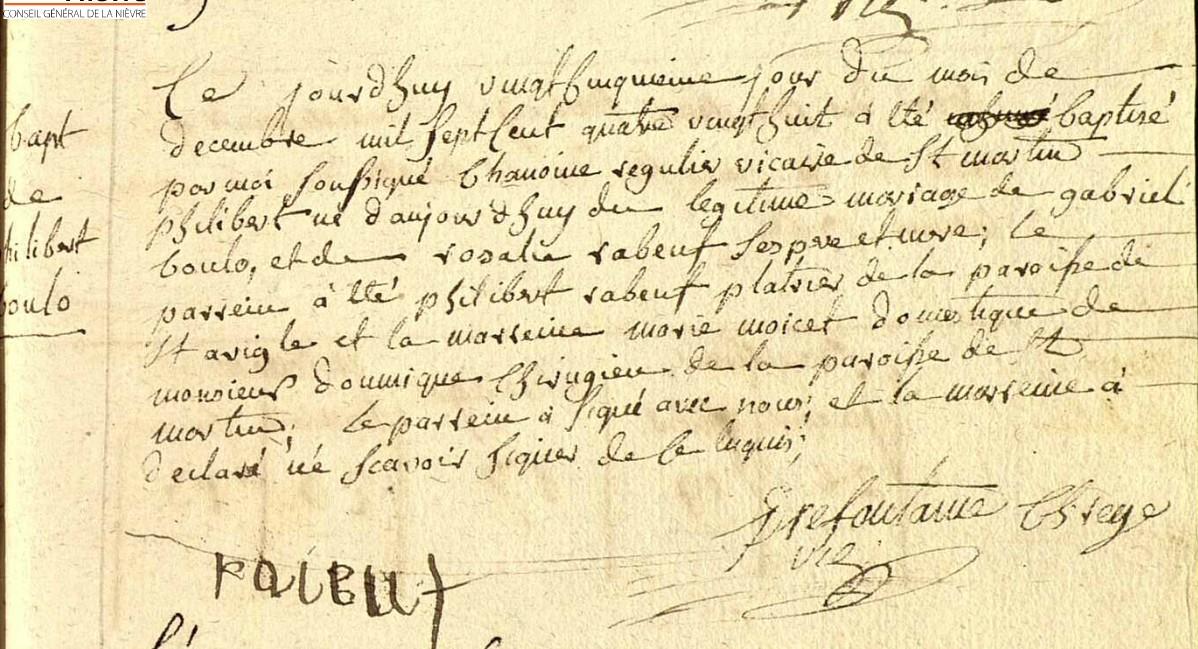 CONSEIL GÉNÉRAL DE LA NIÈVRE
Bapt
de
philibert
boulo
Ce jourdhuy vingtcinquieme jour du mois de
decembre mil septcent quatre vingt huit a été baptisé
par moi soussigné Chanoine regulier vicaire de St martin
philibert né daujourdhuy du legitime mariage de gabriel
boulo, et de rosalie rabeuf ses pere et mere; le
parrein à été philibert rabeuf platrier de la paroisse de
St arigle et la marreine marie moicet domestique de
monsieur dominique Chirugien de la paroisse de St
martin; le parrein a signé avec nous; et la marreine à
declaré né scavoir signer de ce enquis;
Prefontaine Ch rege
vic
rabeuf